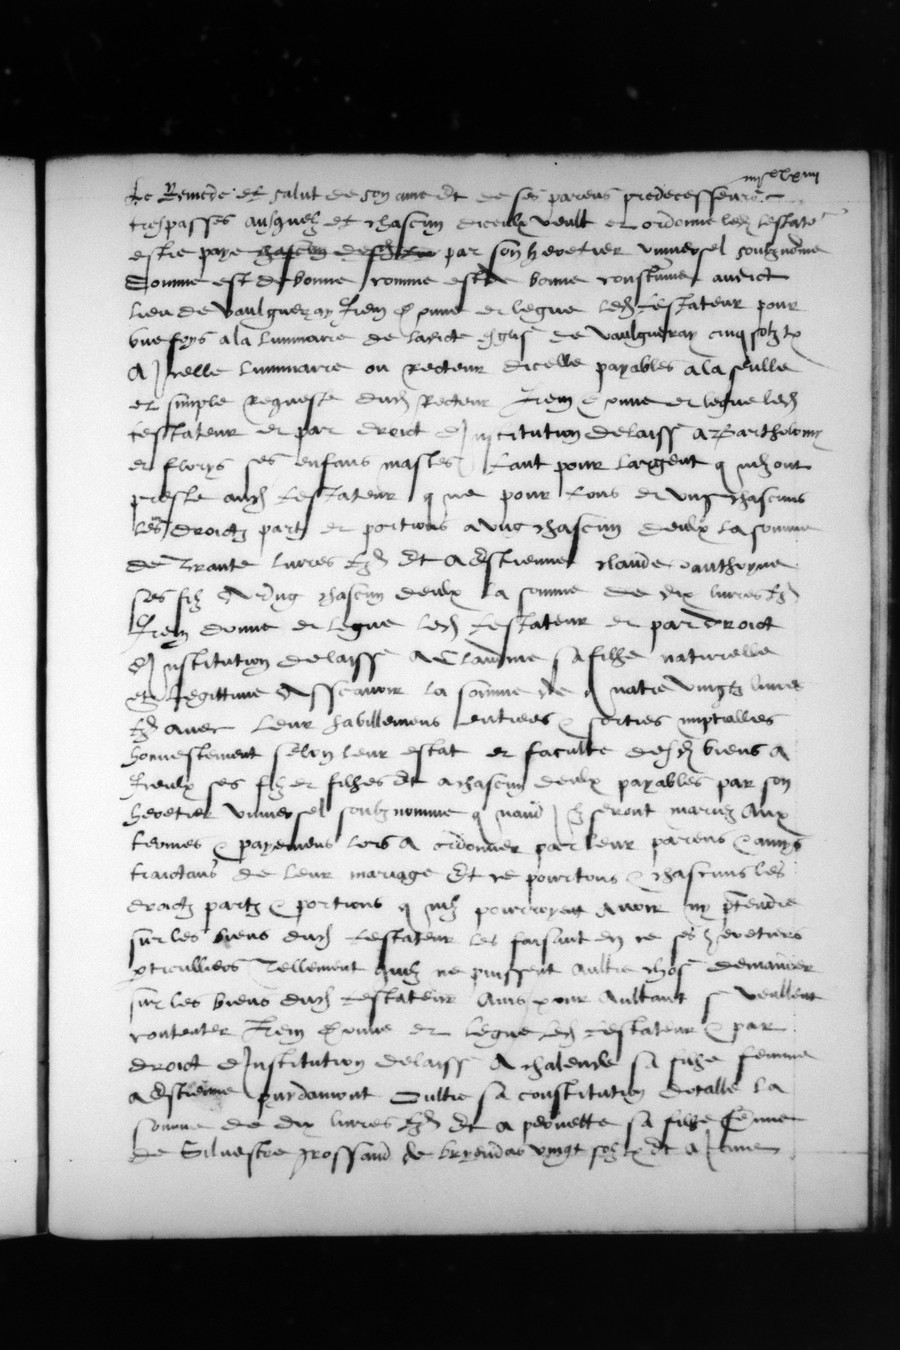 le Remede et salut de son ame et de ses parens predecesseurs
trespasses ausquelz et chascun diceulx veult et ordonne led testateur
estre paye par son heretier universel soubznomme
comme est de bonne comme est de bonne coustume audict
lieu de Vaulgneray Item donne et legue led testateur pour
une foys a la luminaire de ladicte esglise de Vaulgneray cinq solz tz
A icelle luminaire ou recteur dicelle payables a la seulle
et simple requeste dud recteur Item donne et legue led
testateur et par droict d institution delaisse A Bartholomy
et ses enfans masles tant pour largent q uilz ont
preste aud testateur q ue pour tous et ung chascuns
les droictz partz et portions A ung chascun deulx la somme
de Trante livres tz Et A Estienne Claude anthoyne
ses filz A ung chascun deulx la somme de dix livres tz
Item donne et legue led testateur et par droict
d institution delaisse A Claudine sa filhe naturelle
et legittime Asscavoir la somme de q uatre vingtz livres
tz avec leur habillemens nuptialles
honnestement selon leur estat et faculte desd biens A
Iceulx ses filz et filhes et a chascun deulx payables par son
heretier universel soubznomme q uand ilz seront mariez aux
termes & payemens lors A ordonner par leur parens & amys
traictans de leur mariage Et ce pour tous & chascuns les
droictz partz & portions q uilz pourroyent avoir ny ptendre
sur les biens dud testateur les faisant en ce ses heretiers
pticulliers Tellement quilz ne puissent aultre chose demander
sur les biens dud testateur Ains pour Aultant se veullent
contenter Item donne et legue led testateur & par
droict d Institution delaisse A sa filhe femme
a Estienne oultre sa constitution dotalle la
somme de dix livres tz Et a pernette sa filhe femme
de Silvestre de vingt solz tz Et a